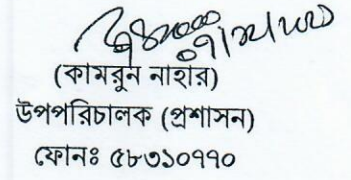 (কামরুন নাহার)
উপপরিচালক (প্রশাসন)
ফোনঃ ৫৮৩১০৭৭০